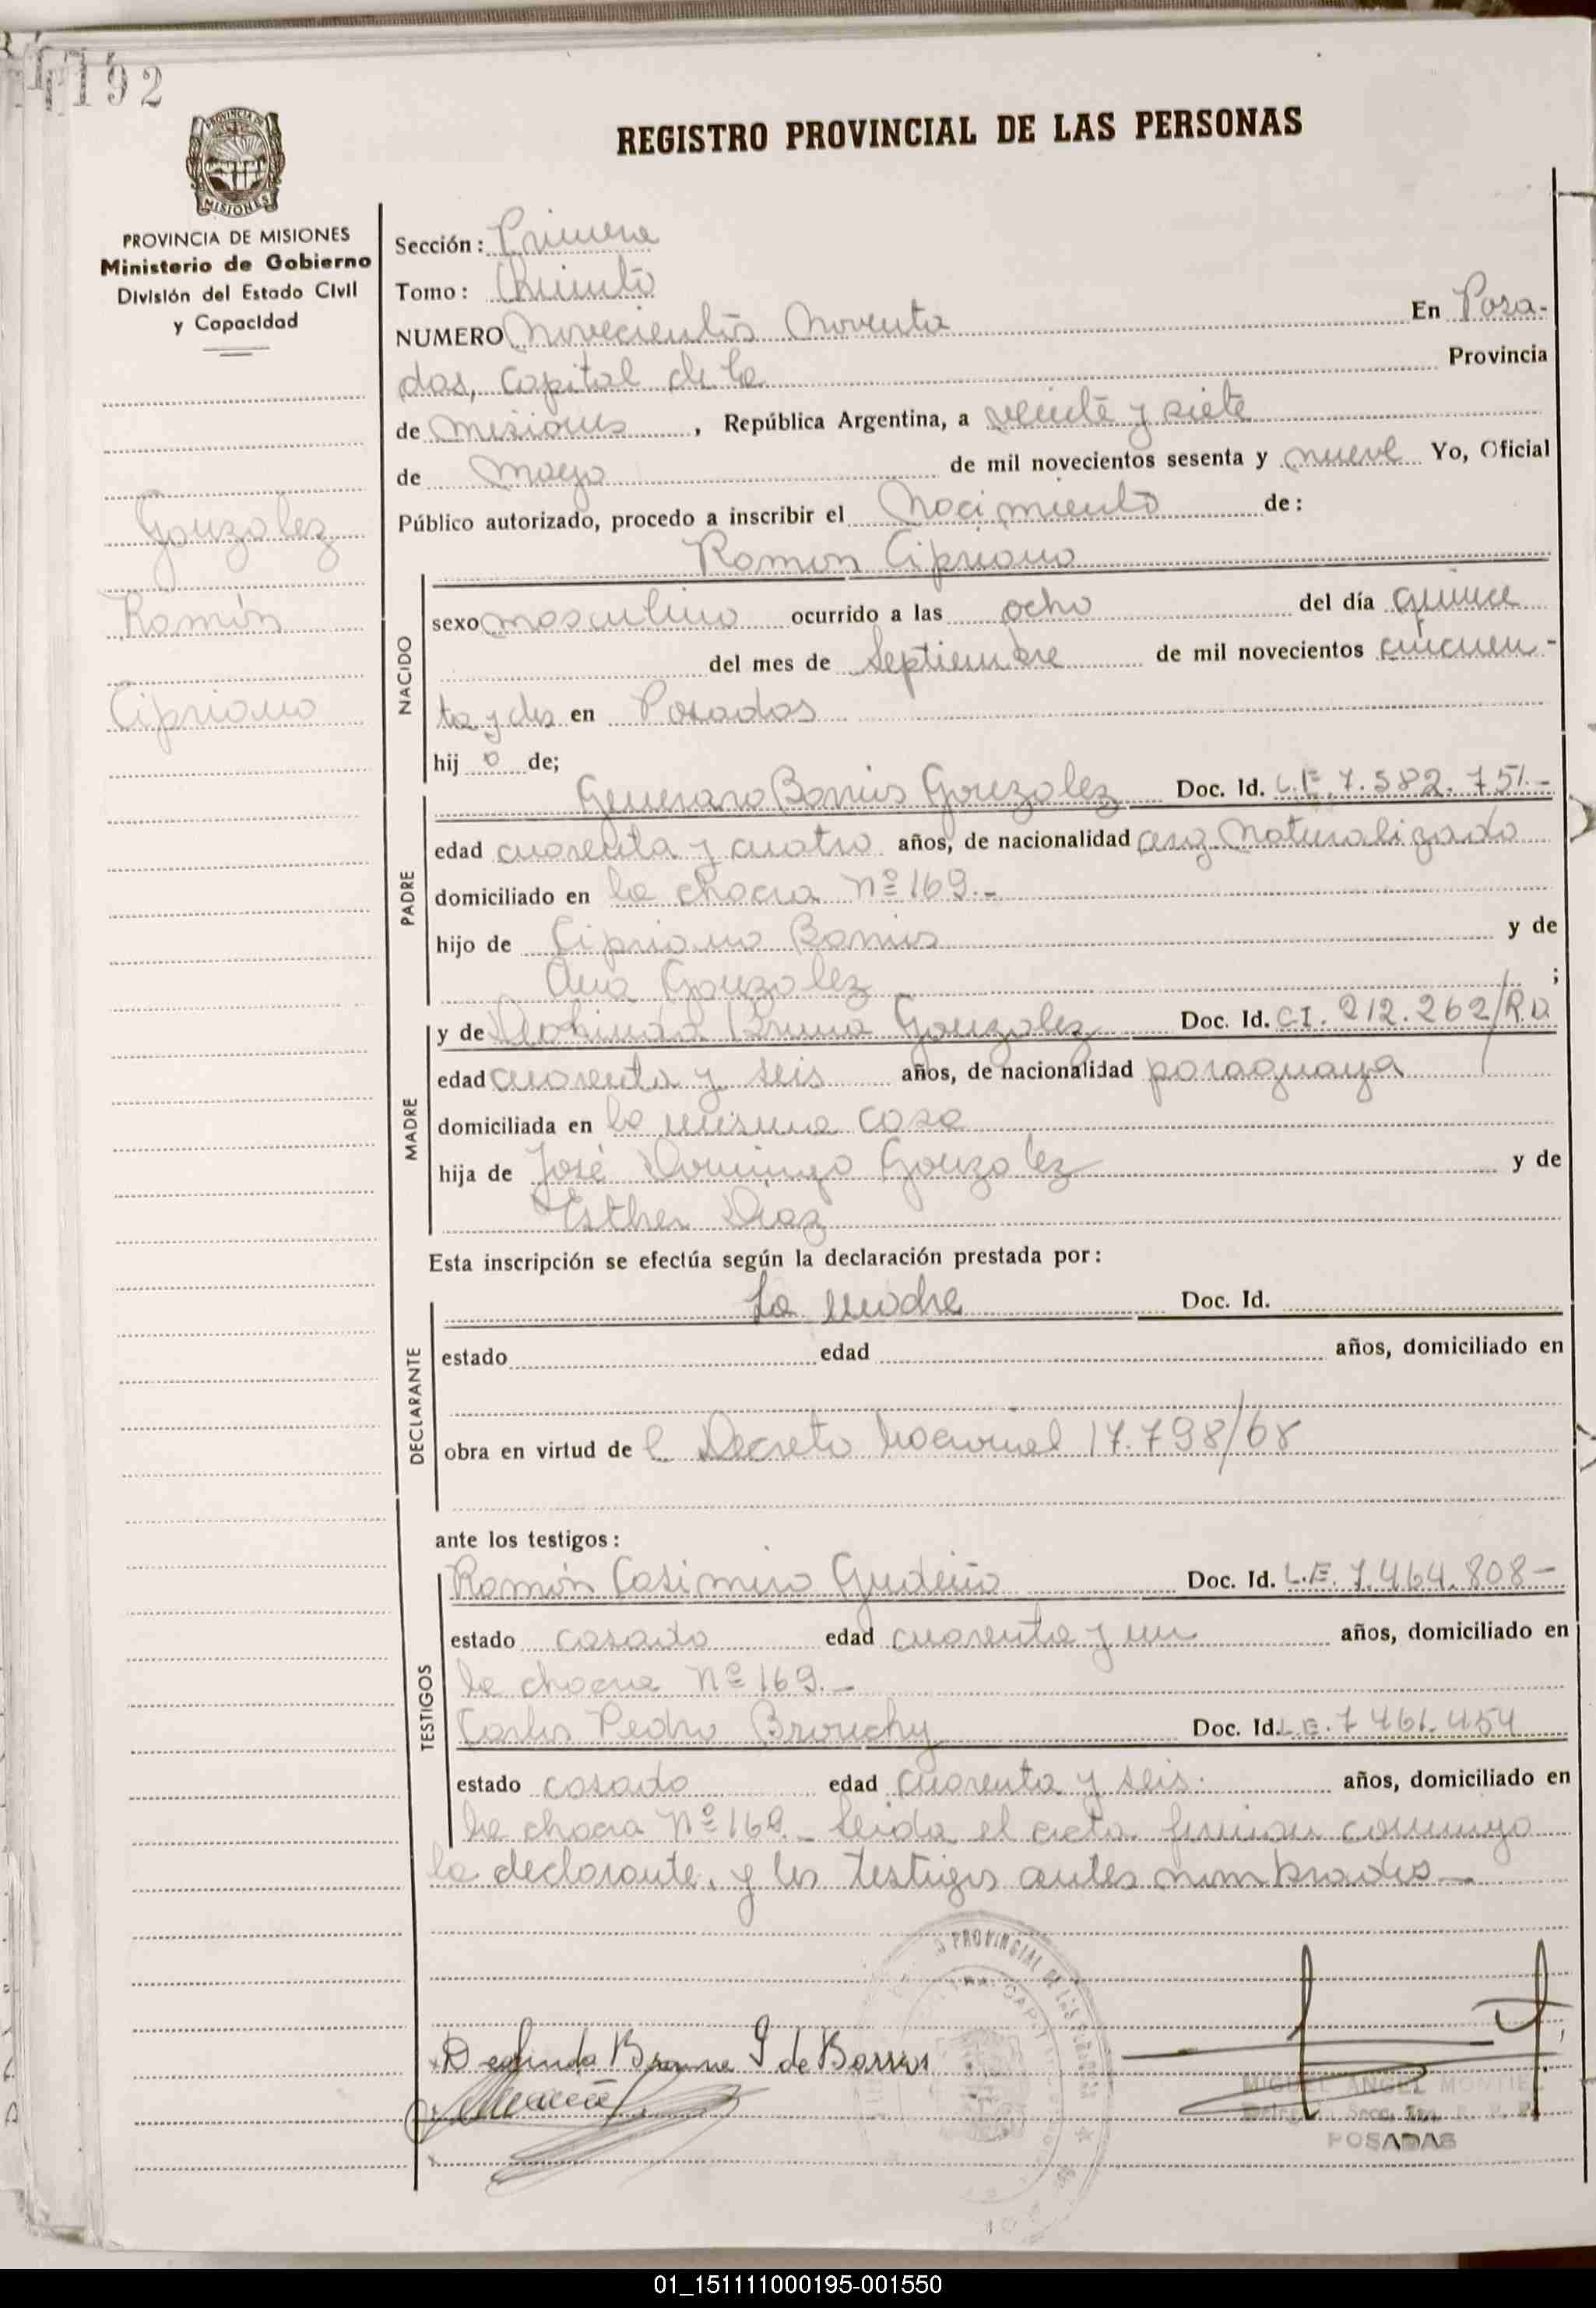 192
REGISTRO PROVINCIAL DE LAS PERSONAS
PROVINCIA DE MISIONES
Ministerio de Gobierno
División del Estado Civil
y Capacidad
Gonzalez
Ramón
Cipriano
Sección: Primera
Tomo: Quinto
NUMERO Novecientos Noventa En Posa-
das, Capital de la Provincia
de Misiones, República Argentina, a veinte y siete
de Mayo de mil novecientos sesenta y nueve Yo, Oficial
Público autorizado, procedo a inscribir el Nacimiento de:
Ramon Cipriano
NACIDO
sexo masculino ocurrido a las ocho del día quince
del mes de Septiembre de mil novecientos cincuen-
ta y dos en Posadas
hij o de;
PADRE
Generaro Barrios Gonzalez Doc. Id. L.E. 7.582.751.-
edad cuarenta y cuatro años, de nacionalidad arg. Naturalizado
domiciliado en la chacra Nº 169.-
hijo de Cipriano Barrios y de
Ana Gonzalez ;
MADRE
y de Deolinda Bruna Gonzalez Doc. Id. C.I. 212.262/R.D.
edad cuarenta y seis años, de nacionalidad paraguaya
domiciliada en la misma casa
hija de José Domingo Gonzalez y de
Esther Diaz
Esta inscripción se efectúa según la declaración prestada por:
DECLARANTE
La madre Doc. Id.
estado edad años, domiciliado en
obra en virtud de l Decreto Nacional 17.798/68
ante los testigos:
TESTIGOS
Ramón Casimiro Gudeño Doc. Id. L.E. 7.464.808-
estado casado edad cuarenta y un años, domiciliado en
la chacra Nº 169.-
Carlos Pedro Brouchy Doc. Id. L.E. 7.461.454
estado casado edad cuarenta y seis. años, domiciliado en
la chacra Nº 169.- Leida el acta firman conmigo
la declarante, y los testigos antes nombrados.-
PROVINCIAL DE LAS PERSONAS
Deolinda Bruna G de Barrios
MIGUEL ANGEL MONTIEL
POSADAS
01_151111000195-001550